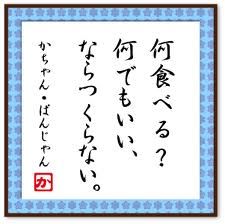 何食べる？
何でもいい、
ならつくらない。
かちゃん・ばんじゃん
か